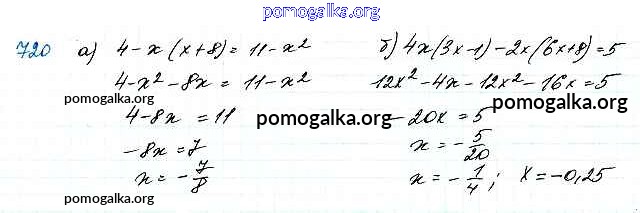 pomogalka.org
720 а) 4-x(x+8)=11-x² б) 4x(3x-1)-2x(6x+8)=5
4-x²-8x=11-x² 12x²-4x-12x²-16x=5
pomogalka.org pomogalka.org
4-8x=11 -20x=5
pomogalka.org
-8x=7 x=-5/20
x=-7/8 x=-1/4; x=-0,25
pomogalka.org